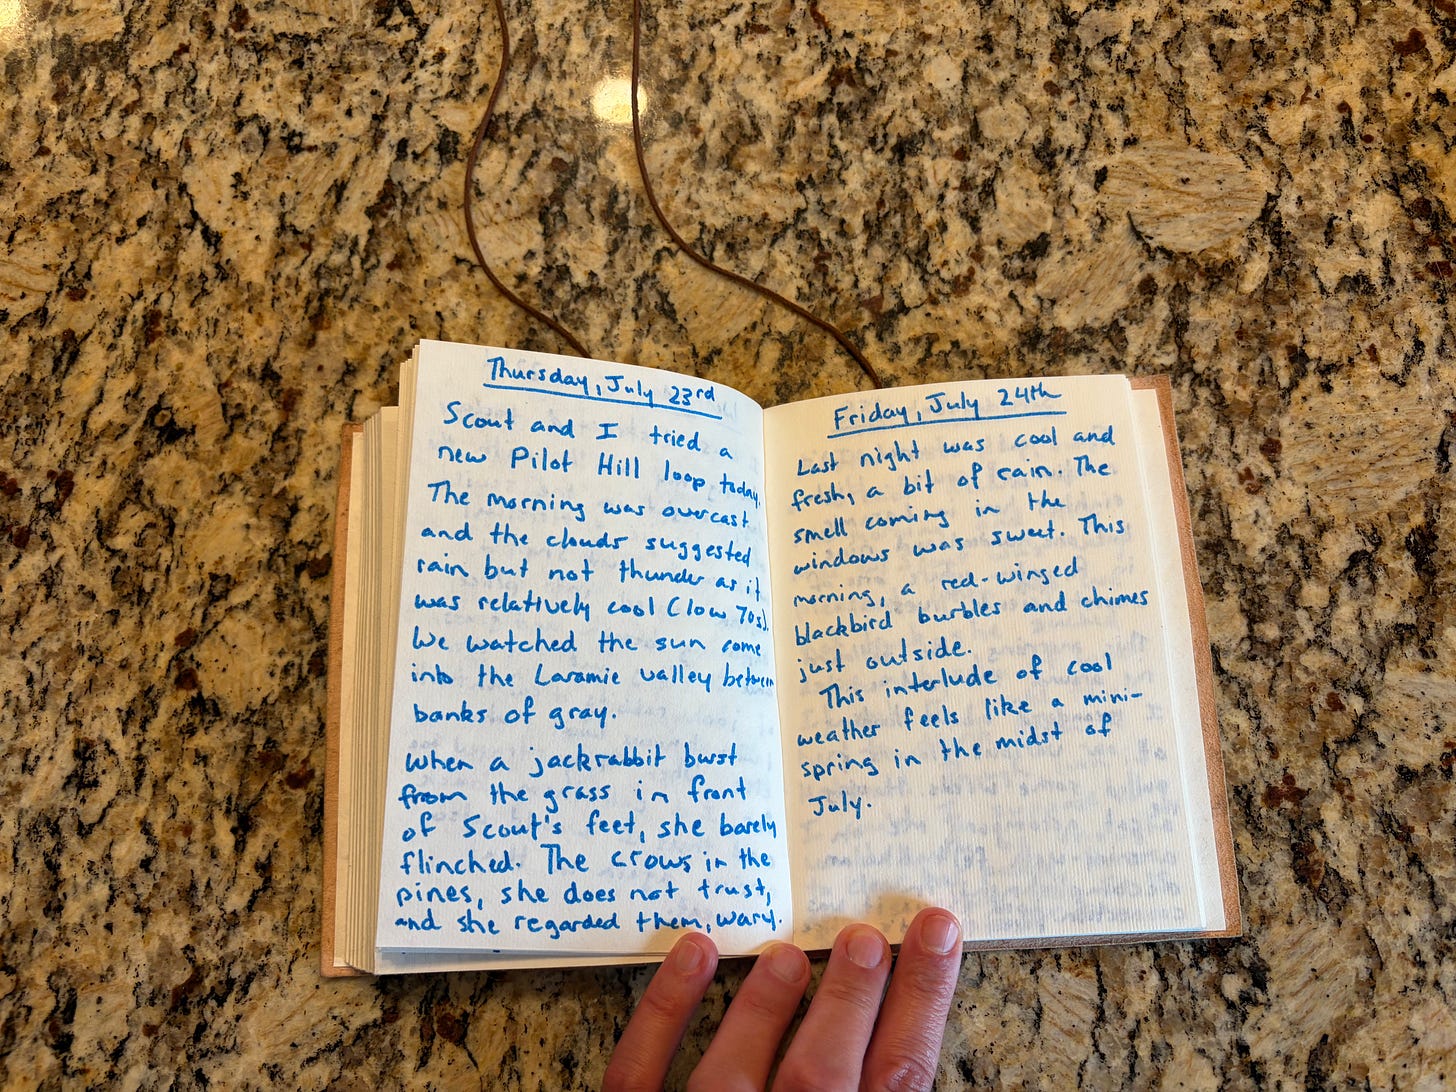 Thursday, July 23rd
Scout and I tried a
new Pilot Hill loop today.
The morning was overcast
and the clouds suggested
rain but not thunder as it
was relatively cool (low 70s).
We watched the sun come
into the Laramie valley between
banks of gray.
When a jackrabbit burst
from the grass in front
of Scout's feet, she barely
flinched. The crows in the
pines, she does not trust,
and she regarded them, wary.
Friday, July 24th
Last night was cool and
fresh, a bit of rain. The
smell coming in the
windows was sweet. This
morning, a red-winged
blackbird burbles and chimes
just outside.
This interlude of cool
weather feels like a mini-
spring in the midst of
July.